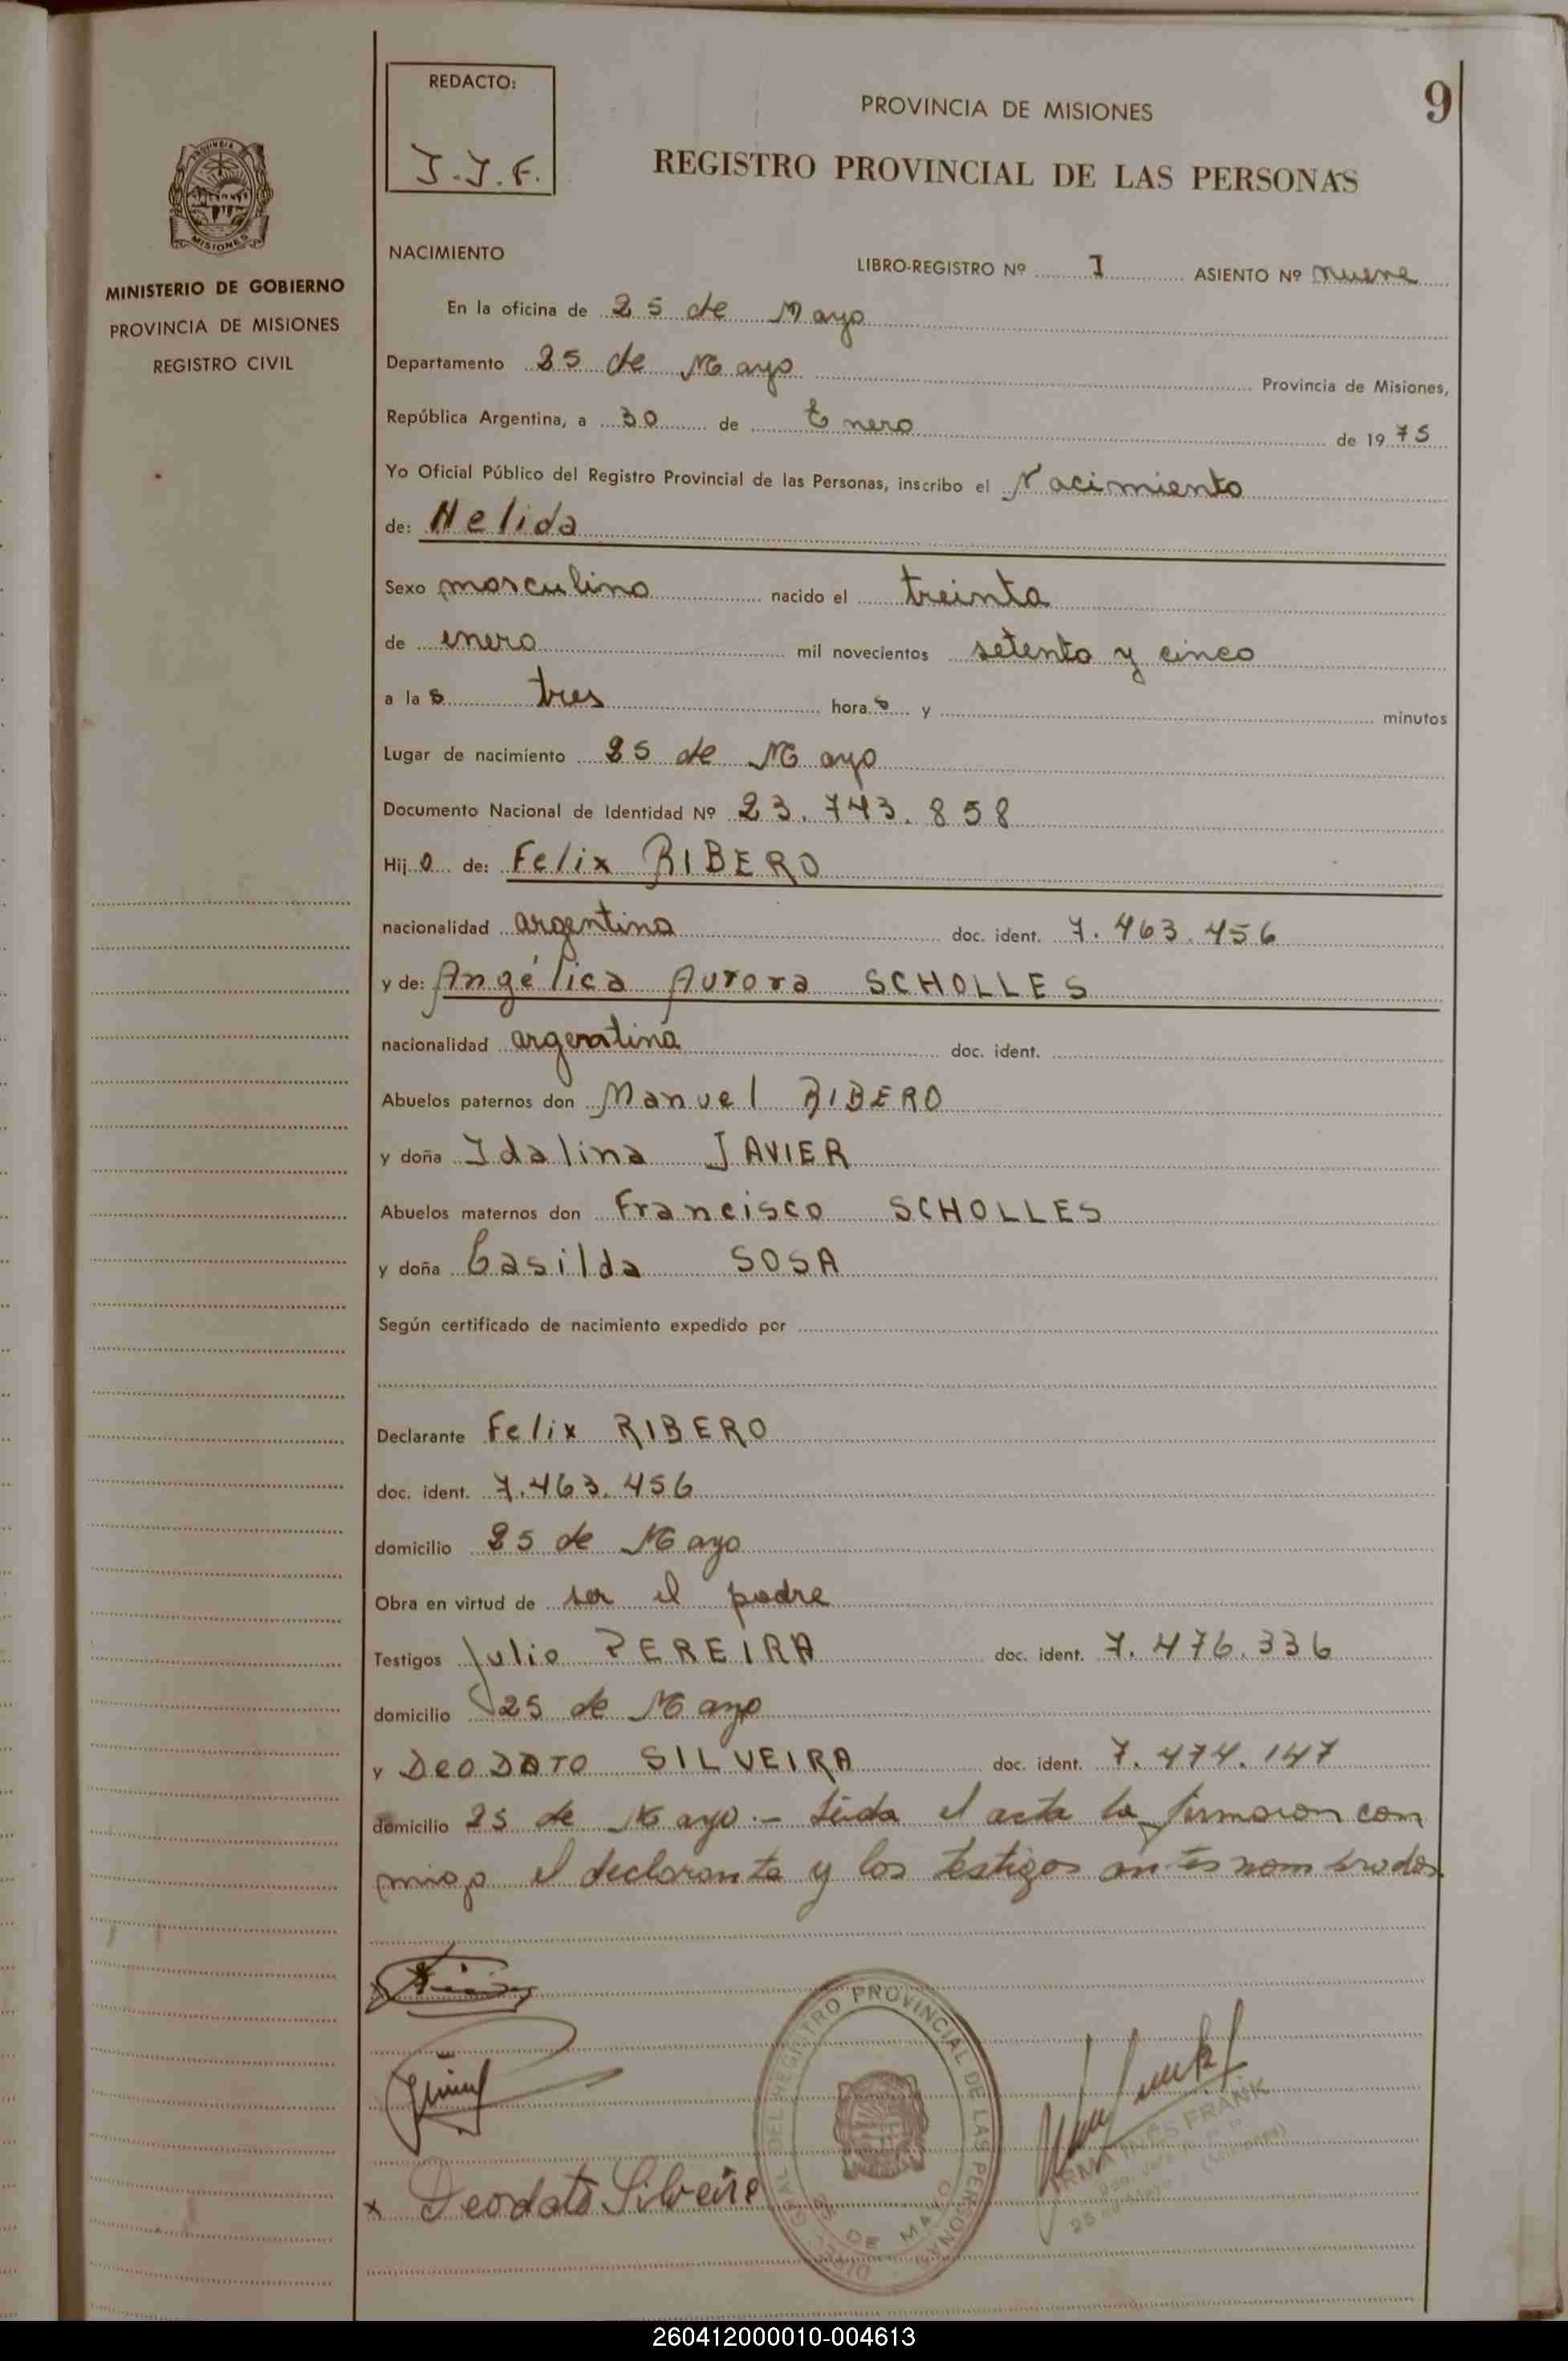 REDACTO:
J.J.F.
PROVINCIA DE MISIONES
9
REGISTRO PROVINCIAL DE LAS PERSONAS
PROVINCIA
MISIONES
MINISTERIO DE GOBIERNO
PROVINCIA DE MISIONES
REGISTRO CIVIL
NACIMIENTO
LIBRO-REGISTRO Nº I ASIENTO Nº nueve
En la oficina de 25 de Mayo
Departamento 25 de Mayo Provincia de Misiones,
República Argentina, a 30 de Enero de 1975
Yo Oficial Público del Registro Provincial de las Personas, inscribo el Nacimiento
de: Nelida
Sexo masculino nacido el treinta
de enero mil novecientos setenta y cinco
a las tres horas y minutos
Lugar de nacimiento 25 de Mayo
Documento Nacional de Identidad Nº 23.743.858
Hijo de: Felix RIBERO
nacionalidad argentina doc. ident. 7.463.456
y de: Angélica Aurora SCHOLLES
nacionalidad argentina doc. ident.
Abuelos paternos don Manuel RIBERO
y doña Idalina JAVIER
Abuelos maternos don Francisco SCHOLLES
y doña Casilda SOSA
Según certificado de nacimiento expedido por
Declarante Felix RIBERO
doc. ident. 7.463.456
domicilio 25 de Mayo
Obra en virtud de ser el padre
Testigos Julio PEREIRA doc. ident. 7.476.336
domicilio 25 de Mayo
y DEODATO SILVEIRA doc. ident. 7.474.147
domicilio 25 de Mayo.- Leída el acta la firmaron con
migo el declarante y los testigos antes nombrados.
DIREC. GRAL. DEL REGISTRO PROVINCIAL DE LAS PERSONAS
25 DE MAYO
IRMA INES FRANK
25 de Mayo (Misiones)
x Deodato Silveira
260412000010-004613